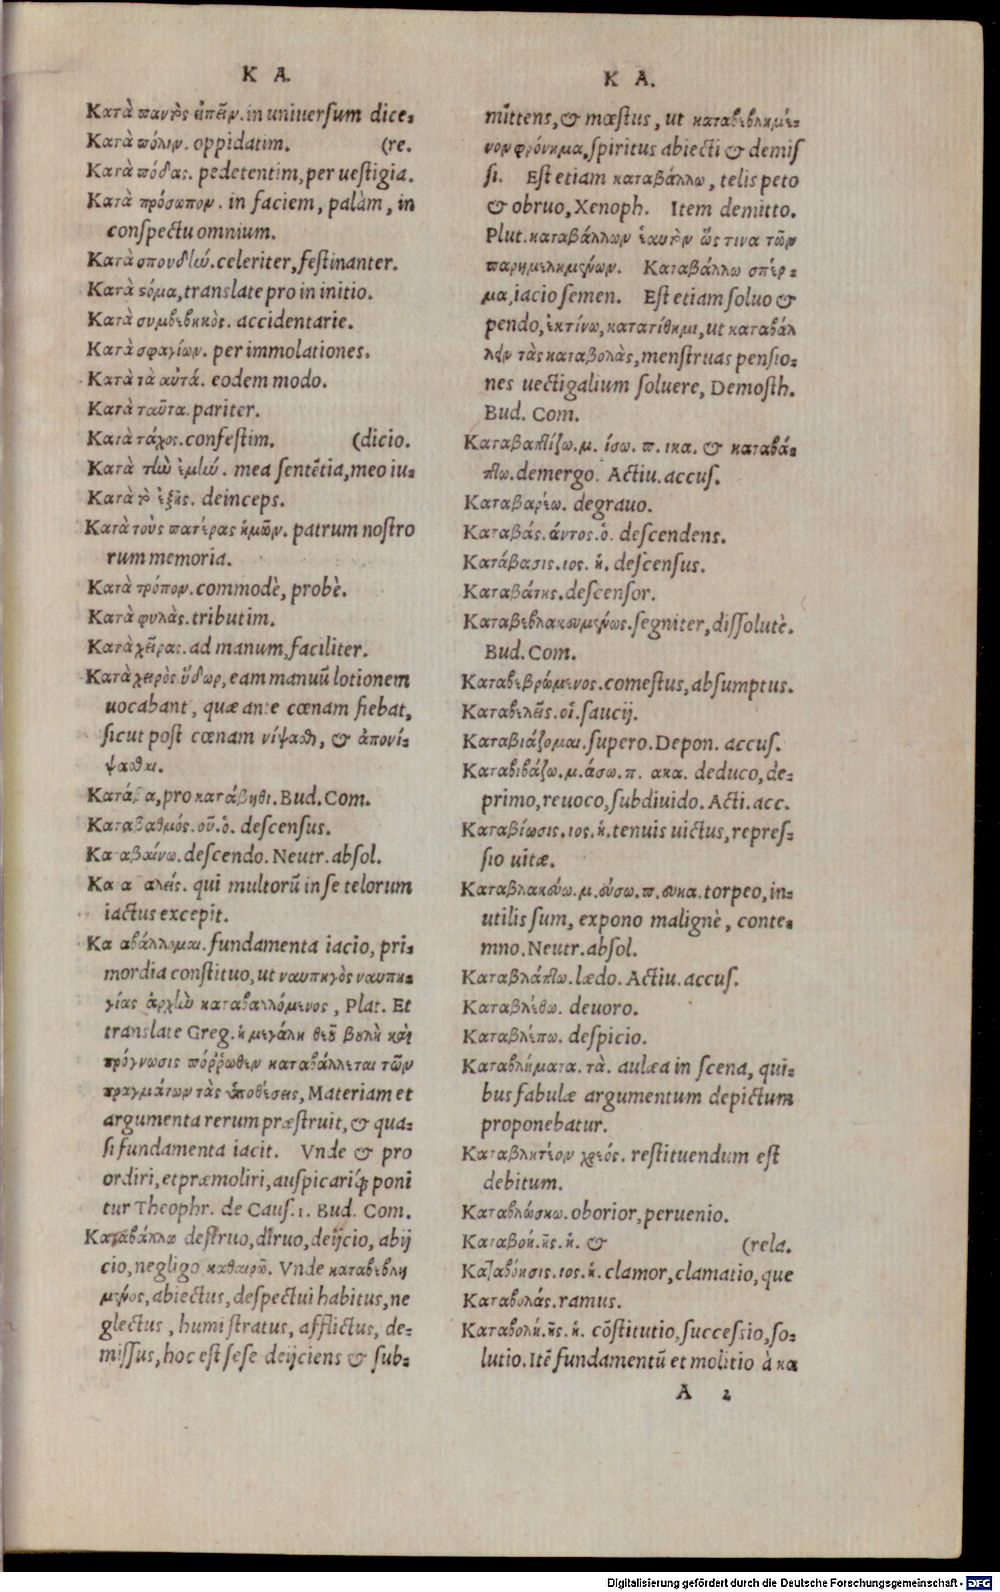 K A.
Κατὰ παντὸς εἰπεῖν. in uniuersum dice-
Κατὰ πόλιν. oppidatim. (re.
Κατὰ πόδας. pedetentim, per uestigia.
Κατὰ πρόσωπον. in faciem, palàm, in
conspectu omnium.
Κατὰ σπουδὴν. celeriter, festinanter.
Κατὰ στόμα, translate pro in initio.
Κατὰ συμβεβηκὸς. accidentarie.
Κατὰ σφαγίων. per immolationes.
Κατὰ τὰ αὐτά. eodem modo.
Κατὰ ταῦτα. pariter.
Κατὰ τάχος. confestim. (dicio.
Κατὰ τὴν ἐμὴν. mea sentẽtia, meo iu-
Κατὰ τὸ ἑξῆς. deinceps.
Κατὰ τοὺς πατέρας ἡμῶν. patrum nostro
rum memoria.
Κατὰ τρόπον. commodè, probè.
Κατὰ φυλὰς. tributim.
Κατὰ χεῖρας. ad manum, faciliter.
Κατὰ χειρὸς ὕδωρ, eam manuũ lotionem
uocabant, quæ ante cœnam fiebat,
sicut post cœnam νίψαθη, & ἀπονί-
ψαθαι.
Κατάβα, pro κατάβηθι. Bud. Com.
Καταβαθμός. οῦ. ὁ. descensus.
Κα αβαίνω. descendo. Neutr. absol.
Κα α αλείς. qui multorũ in se telorum
iactus excepit.
Κα αβάλλομαι. fundamenta iacio, pri-
mordia constituo, ut ναυπηγὸς ναυπη-
γίας ἀρχὴν καταβαλλόμενος, Plat. Et
translate Greg. ἡ μεγάλη θεοῦ βουλὴ καὶ
πρόγνωσις πόῤῥωθεν καταβάλλεται τῶν
πραγμάτων τὰς ὑποθέσεις, Materiam et
argumenta rerum præstruit, & qua-
si fundamenta iacit. Vnde & pro
ordiri, et præmoliri, auspicariq; poni
tur Theophr. de Caus. 1. Bud. Com.
Καταβάλλω destruo, diruo, deijcio, abij
cio, negligo καθαιρῶ. Vnde καταβεβλη
μένος, abiectus, despectui habitus, ne
glectus, humi stratus, afflictus, de-
missus, hoc est sese deijciens & sub-
K A.
mittens, & mœstus, ut καταβεβλημέ-
νον φρόνημα, spiritus abiecti & demis
si. Est etiam καταβάλλω, telis peto
& obruo, Xenoph. Item demitto.
Plut. καταβάλλων ἑαυτὸν ὥς τινα τῶν
παρημελημένων. Καταβάλλω σπέρ-
μα, iacio semen. Est etiam soluo &
pendo, ἐκτίνω, κατατίθημι, ut καταβάλ
λειν τὰς καταβολὰς, menstruas pensio-
nes uectigalium soluere, Demosth.
Bud. Com.
Καταβαπτίζω. μ. ίσω. π. ικα. & καταβά-
πτω. demergo. Actiu. accus.
Καταβαρέω. degrauo.
Καταβάς. άντος. ὁ. descendens.
Κατάβασις. ιος. ἡ. descensus.
Καταβάτης. descensor.
Καταβεβλακευμένως. segniter, dissolutè.
Bud. Com.
Καταβεβρώμενος. comestus, absumptus.
Καταβελεῖς. οἱ. saucij.
Καταβιάζομαι. supero. Depon. accus.
Καταβιβάζω. μ. άσω. π. ακα. deduco, de-
primo, reuoco, subdiuido. Acti. acc.
Καταβίωσις. ιος. ἡ. tenuis uictus, repres-
sio uitæ.
Καταβλακεύω. μ. εύσω. π. ευκα. torpeo, in-
utilis sum, expono malignè, conte-
mno. Neutr. absol.
Καταβλάπτω. lædo. Actiu. accus.
Καταβλέθω. deuoro.
Καταβλέπω. despicio.
Καταβλήματα. τὰ. aulæa in scena, qui-
bus fabulæ argumentum depictum
proponebatur.
Καταβλητέον χρέος. restituendum est
debitum.
Καταβλώσκω. oborior, peruenio.
Καταβοή. ῆς. ἡ. & (rela.
Καταβόησις. ιος. ἡ. clamor, clamatio, que
Καταβολάς. ramus.
Καταβολή. ῆς. ἡ. cõstitutio, successio, so-
lutio. Itẽ fundamentũ et molitio à κα
A 2
Digitalisierung gefördert durch die Deutsche Forschungsgemeinschaft - DFG